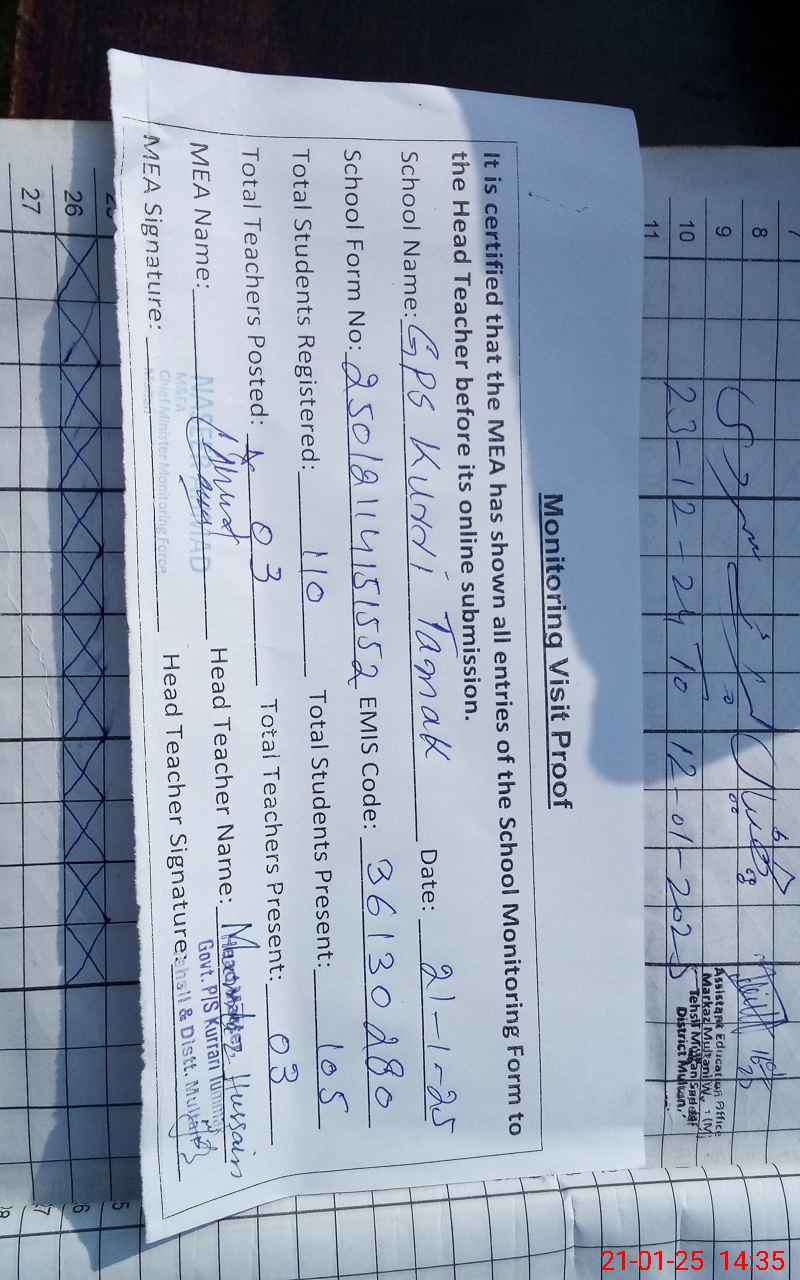 Monitoring Visit Proof
It is certified that the MEA has shown all entries of the School Monitoring Form to
the Head Teacher before its online submission.
School Name: GPS Kurri Tamak Date: 21-1-25
School Form No: 25012114151552 EMIS Code: 36130280
Total Students Registered: 110 Total Students Present: 105
Total Teachers Posted: 03 Total Teachers Present: 03
MEA Name: Head Teacher Name: Hussain
Govt. P/S Kurrari
MEA Signature: Head Teacher Signature:
Tehsil & Distt. Multan
MSEA
Chief Minister Monitoring Force
7
8
9
10 23-12-24 To 12-01-2025
11
Assistant Education Office
Markaz Multani W
Tehsil Multan Saddar
District Multan
26
27
5
6
7
21-01-25 14:35